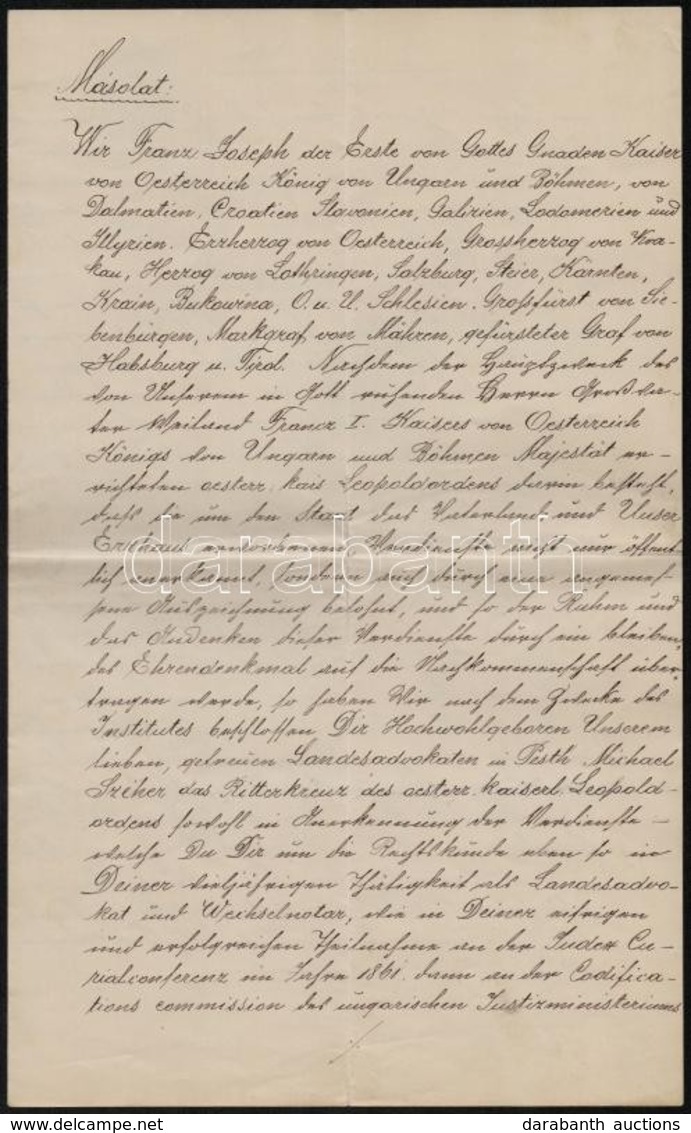 Másolat:
Wir Franz Joseph der Erste von Gottes Gnaden Kaiser
von Oesterreich König von Ungarn und Böhmen, von
Dalmatien, Croatien Slavonien, Galizien, Lodomerien und
Illyrien. Erzherzog von Oesterreich, Grossherzog von Kra-
kau, Herzog von Lothringen, Salzburg, Steier, Kärnten,
Krain, Bukowina, O. u. U. Schlesien. Großfürst von Sie-
benbürgen, Markgraf von Mähren, gefürsteter Graf von
Habsburg u. Tirol. Nachdem der Hauptzweck des
von Unserem in Gott ruhenden Herrn Großva-
ter Weiland Francz I. Kaisers von Oesterreich
Königs von Ungarn und Böhmen Majestät er-
richteten oesterr. kais Leopoldordens darin besteht,
daß die um den Staat das Vaterland und Unser
Erzhaus erworbenen Verdienste nicht nur öffent-
lich anerkannt, sondern auch durch eine angemes-
sene Auszeichnung belohnt, und so der Ruhm und
das Andenken dieser Verdienste durch ein bleiben-
des Ehrendenkmal auf die Nachkommenschaft über-
tragen werde, so haben Wir nach dem Zwecke des
Institutes beschlossen Dir Hochwohlgeboren Unserem
lieben, getreuen Landesadvokaten in Pesth Michael
Széher das Ritterkreuz des oesterr. kaiserl. Leopold-
ordens sowohl in Anerkennung der Verdienste –
welche Du Dir um die Rechtskunde eben so in
Deiner vieljährigen Thätigkeit als Landesadvo-
kat und Wechselnotar, wie in Deiner eifrigen
und erfolgreichen Theilnahme an der Judex Cu-
rialconferenz im Jahre 1861. dann an der Codifica-
tions commission des ungarischen Justizministeriums
./.
darabanth
darabanth auctions